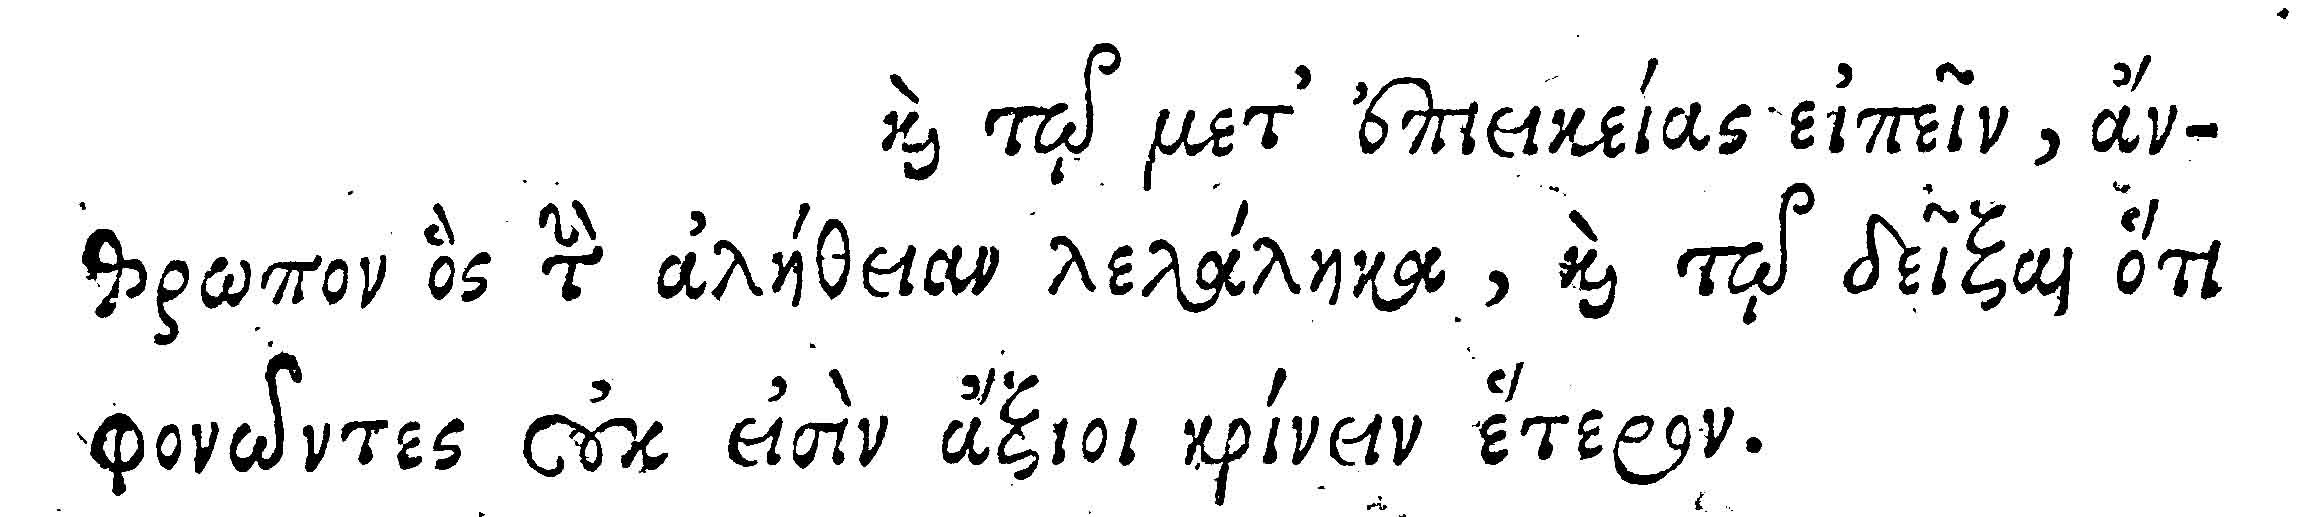 καὶ τῷ μετ' ἐπιεικείας εἰπεῖν, ἄν-
θρωπον ὃς τὴν ἀλήθειαν λελάληκα, καὶ τῷ δεῖξαι ὅτι
φονῶντες οὐκ εἰσὶν ἄξιοι κρίνειν ἕτερον.